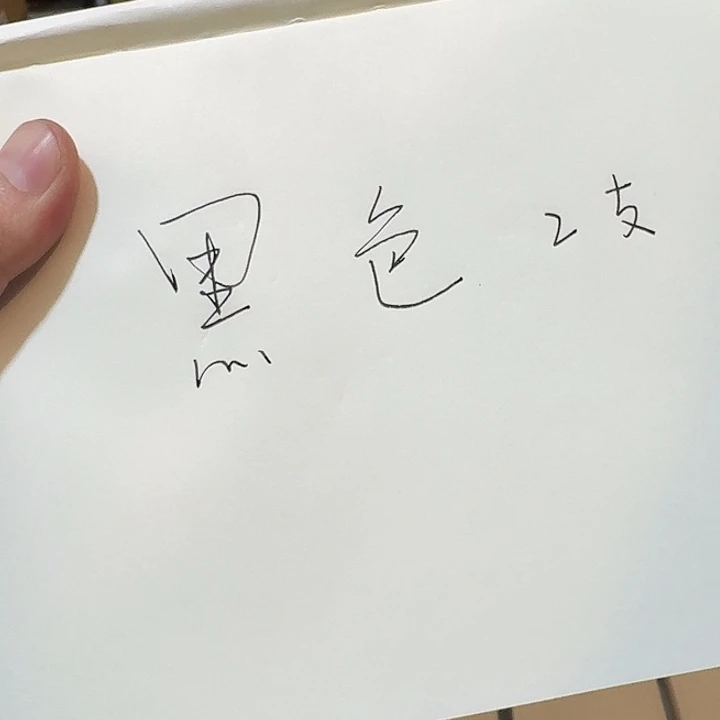 黑色 2支